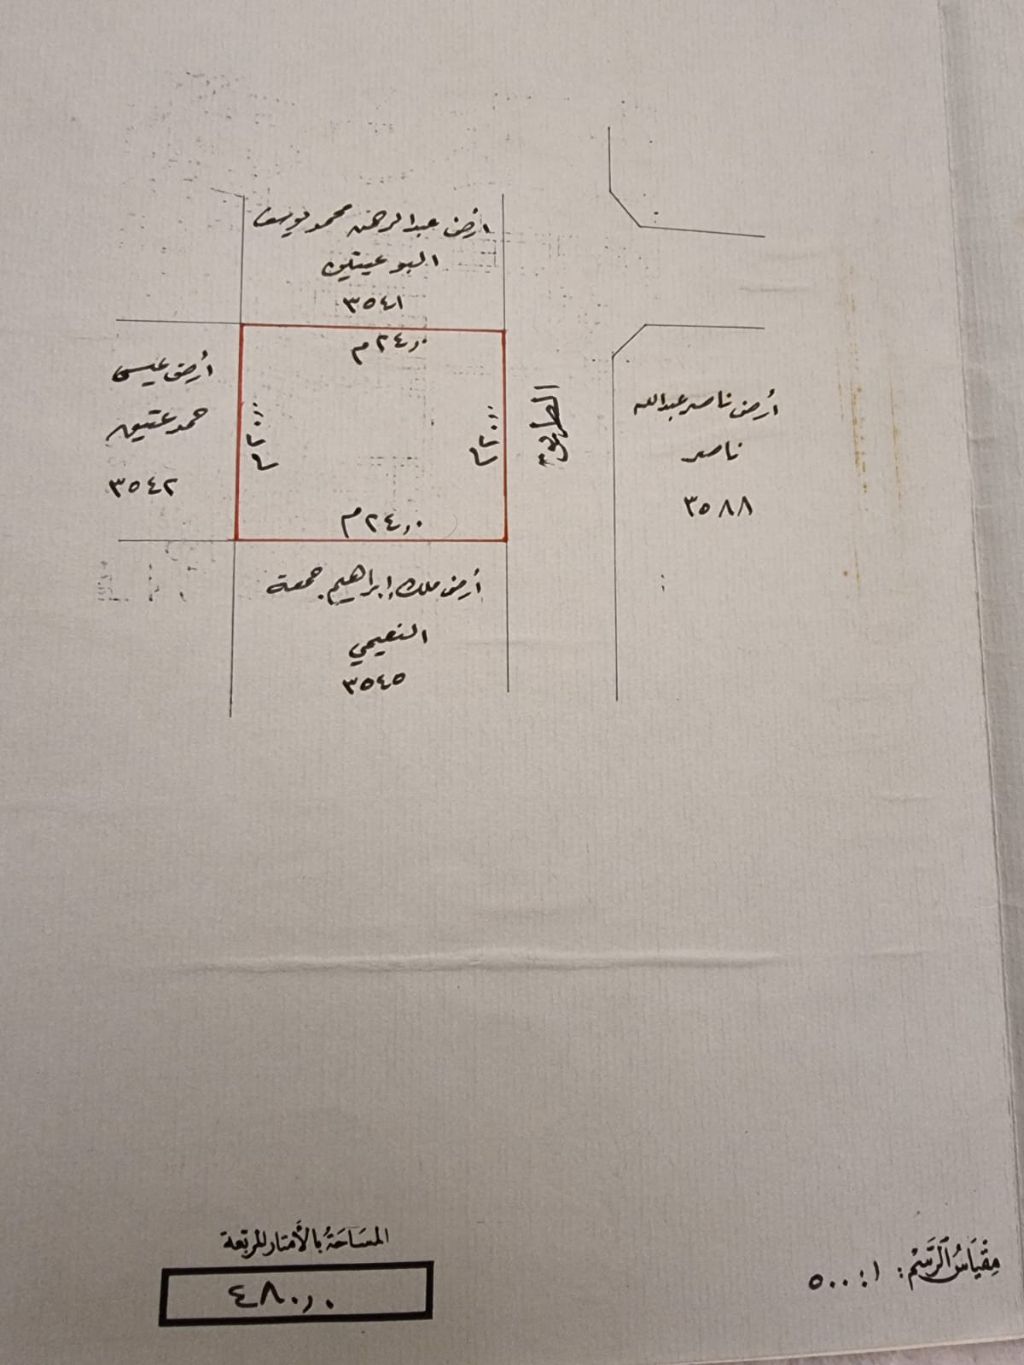 أرض عبدالرحمن محمد يوسف
البوعينين
٣٥٤١
٢٤,٠ م
أرض عيسى
حمد عتيق
٣٥٤٢
٢٠,٠ م
٢٠,٠ م
الطريق
أرض ناصر عبدالله
ناصر
٣٥٨٨
٢٤,٠ م
أرض ملك إبراهيم جمعة
النعيمي
٣٥٤٥
المساحة بالأمتار المربعة
٤٨٠,٠
مقياس الرسم: ١:٥٠٠